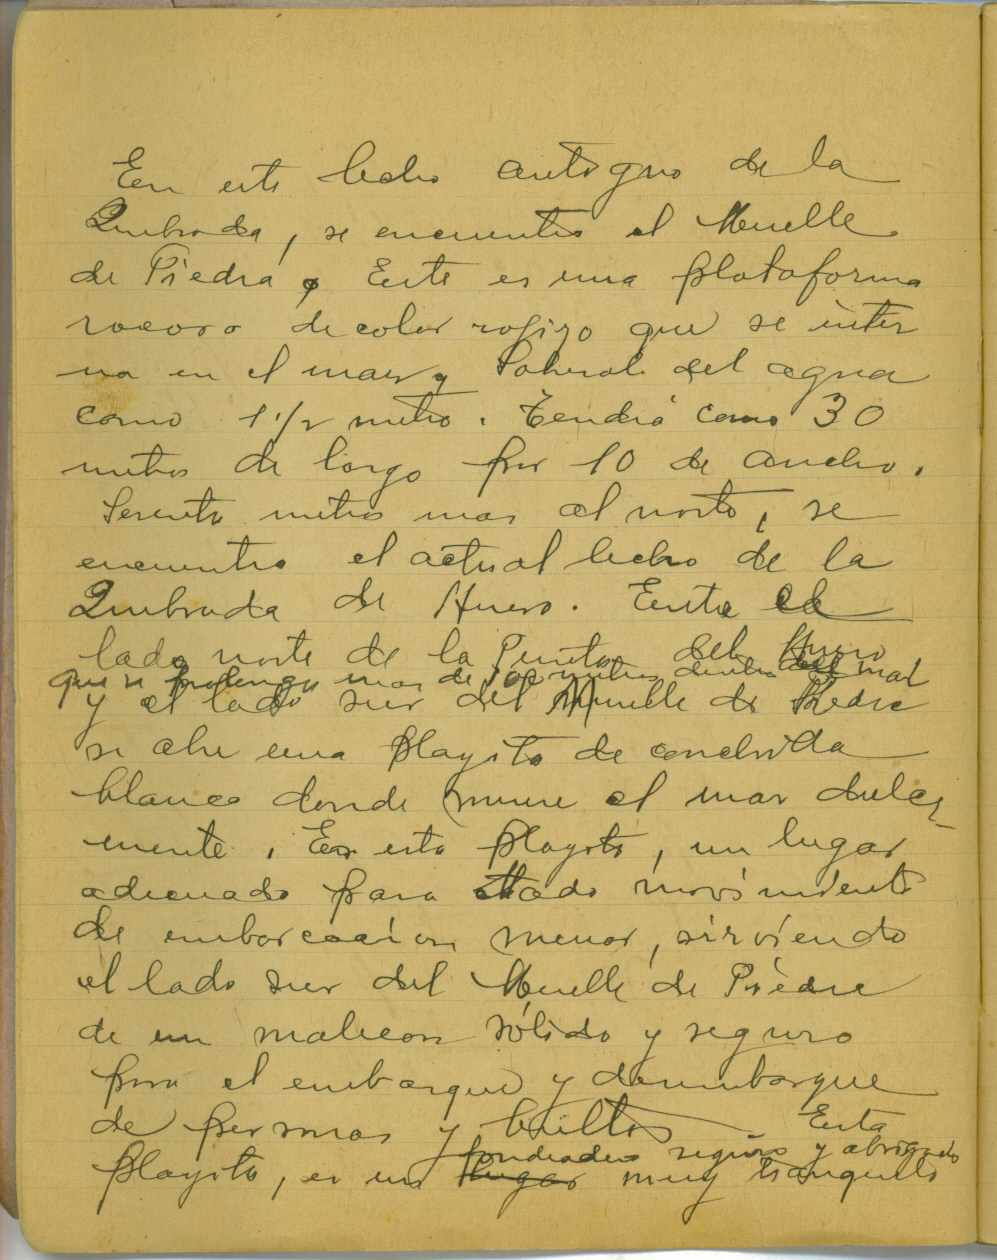 En este lecho antiguo de la
Quebrada, se encuentra el Muelle
de Piedra. Este es una plataforma
rocosa de color rojizo que se inter
na en el mar y sobresale del agua
como 1 1/2 metro. Tendrá como 30
metros de largo por 10 de ancho.
Sesenta metros mas al norte, se
encuentra el actual lecho de la
Quebrada de Hueso. Entre el
lado norte de la Punta del Hueso
que se prolonga mas de 100 metros dentro del mar
y el lado sur del Muelle de Piedra
se abre una playita de conchilla
blanca donde muere el mar dulce-
mente. Es esta playita, un lugar
adecuado para todo movimiento
de embarcación menor, sirviendo
el lado sur del Muelle de Piedra
de un malecon sólido y seguro
para el embarque y desembarque
de personas y bultos. Esta
fondeadero seguro y abrigado
playita, es un lugar muy tranquilo